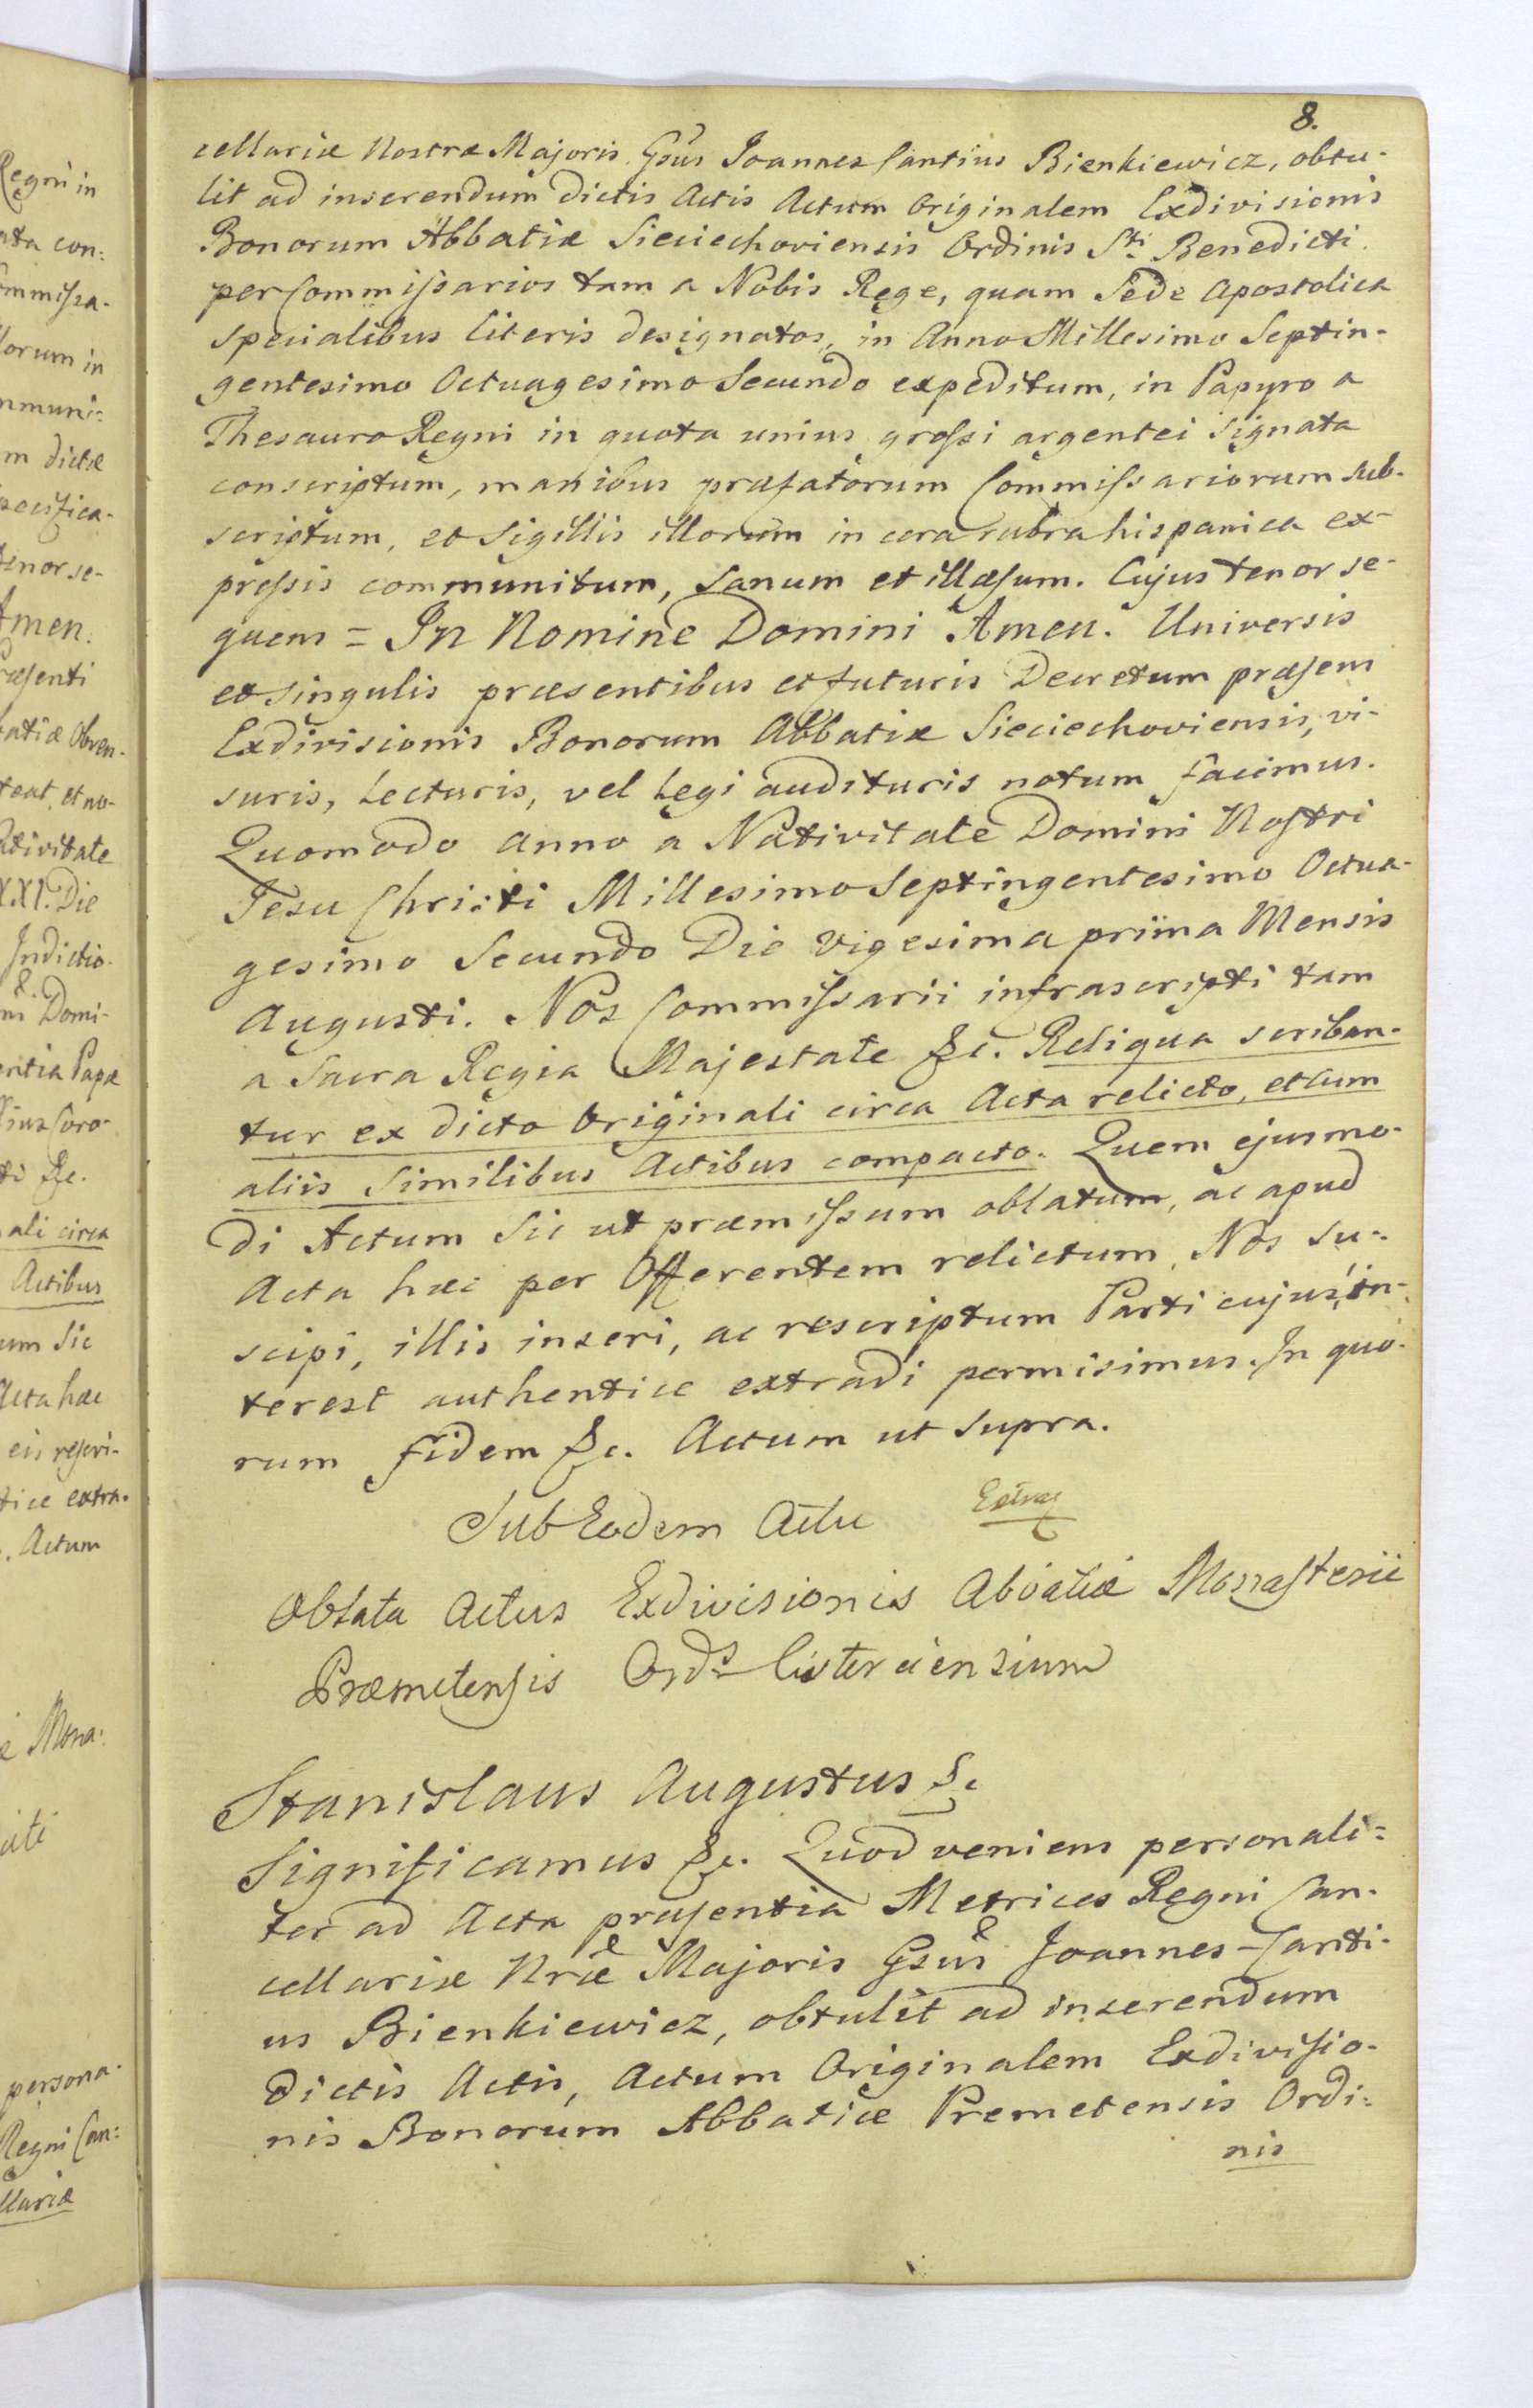 8.
cellariæ Nostræ Majoris Gsus Joannes Cantius Bienkiewicz, obtu-
lit ad inserendum dictis Actis Actum Originalem Exdivisionis
Bonorum Abbatiæ Sieciechoviensis Ordinis Sti Benedicti
per Commissarios tam a Nobis Rege, quam Sede Apostolica
specialibus literis designatos, in Anno Millesimo Septin-
gentesimo Octuagesimo Secundo expeditum, in Papyro a
Thesauro Regni in quota unius grossi argentei signata
conscriptum, manibus præfatorum Commissariorum sub-
scriptum, et Sigillis illorum in cera rubra hispanica ex-
pressis communitum, sanum et illæsum. Cujus tenor se-
quens = In Nomine Domini Amen. Universis
et singulis præsentibus et futuris Decretum præsens
Exdivisionis Bonorum Abbatiæ Sieciechoviensis, vi-
suris, Lecturis, vel Legi audituris notum facimus.
Quomodo Anno a Nativitate Domini Nostri
Jesu Christi Millesimo Septingentesimo Octua-
gesimo Secundo Die vigesima prima Mensis
Augusti. Nos Commissarii infrascripti tam
a Sacra Regia Majestate &c. Reliqua scriban-
tur ex dicto Originali circa Acta relicto, et cum
aliis similibus Actibus compacto. Quem ejusmo-
di Actum Sic ut præmissum oblatum, ac apud
Acta hæc per Offerentem relictum, Nos su-
scipi, illis inseri, ac rescriptum Parti cujus in-
terest authentice extradi permisimus. In quo-
rum fidem &c. Actum ut supra.
Sub Eodem Actu
Oblata Actus Exdivisionis Abbatiæ Monasterii
Præmetensis Ords Cisterciensium
Stanislaus Augustus &c
Significamus &c. Quod veniens personali=
ter ad Acta præsentia Metrices Regni Can-
cellariæ Nræ Majoris Gsus Joannes Canti-
us Bienkiewicz, obtulit ad inserendum
dictis Actis, Actum Originalem Exdivisio-
nis Bonorum Abbatiæ Premetensis Ordi=
nis
Regni in
ata con=
ommissa-
lorum in
mmuni=
m dictæ
pecifica-
tenor se-
Amen.
ræsenti
atiæ Obven-
teat, et no-
ativitate
XXI. Die
Indictio-
ni Domi-
entia Papæ
ti &c.
ali circa
Actibus
um Sic
Acta hæc
eis rescri-
tice extra-
. Actum
æ Mona=
persona-
Regni Can=
llariæ